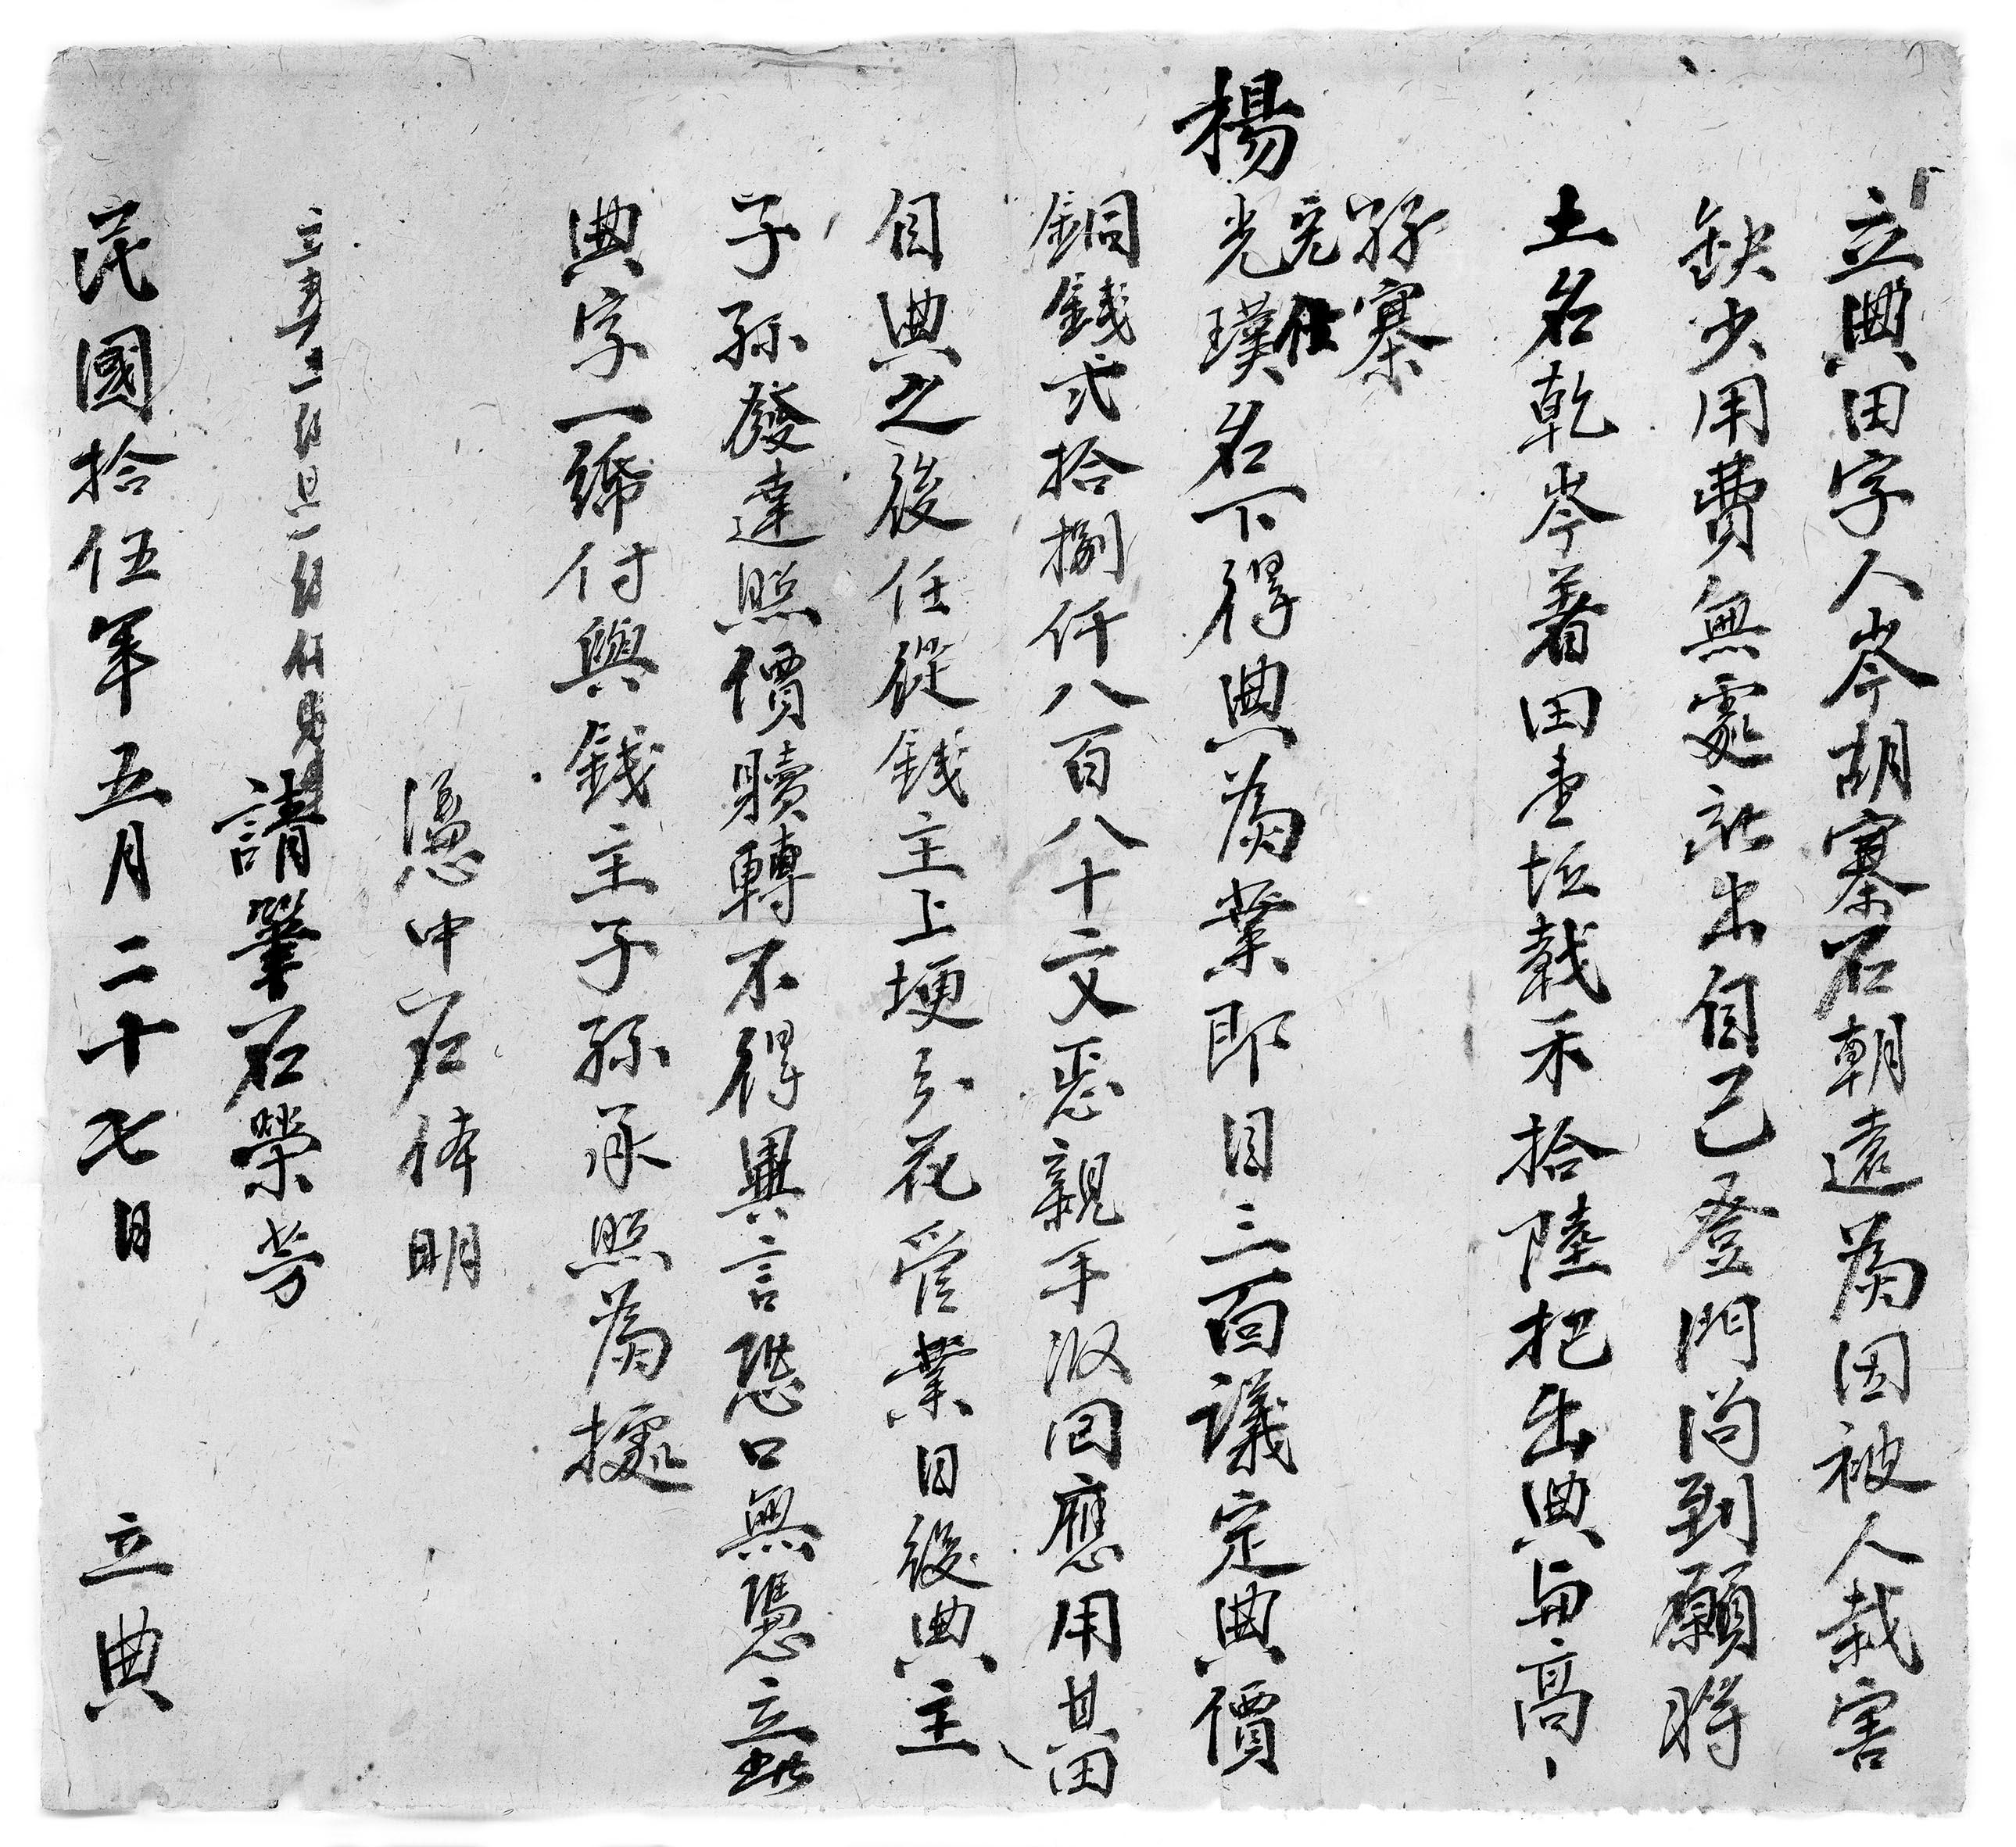 立典田字人岑胡寨石朝遠為因被人栽害
缺少用費無處訟出自己登門问到願將
土名乾岑着田壹坵栽禾拾陸把出典与高
孫寨
楊光 仕
光璞名下得典為業即日三面議定典價
銅錢弍拾捌仟八百八十文恶親手收回應用其田
自典之後任從錢主上埂引花管業日後典主
子孫發達照價贖轉不得異言恐口無憑立此
典字一𥿄付與錢主子孫承照為據
憑中岩体明
請筆石榮芳
民國拾伍年五月二十七日 立典